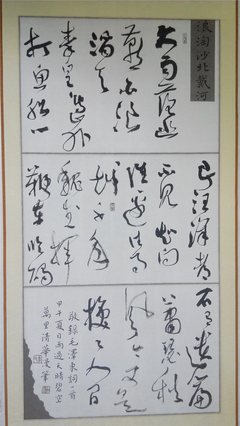 浪淘沙北戴河
大雨落幽
燕白浪
滔天
秦皇島外
打魚船一
片汪洋都
不見知向
誰邊往事
越千年
魏武揮
鞭東臨碣
石有遺篇
蕭瑟秋
風今又是
換了人間
敬錄毛澤東詞一首
甲午夏日雨過天晴碧空
萬里清華筆